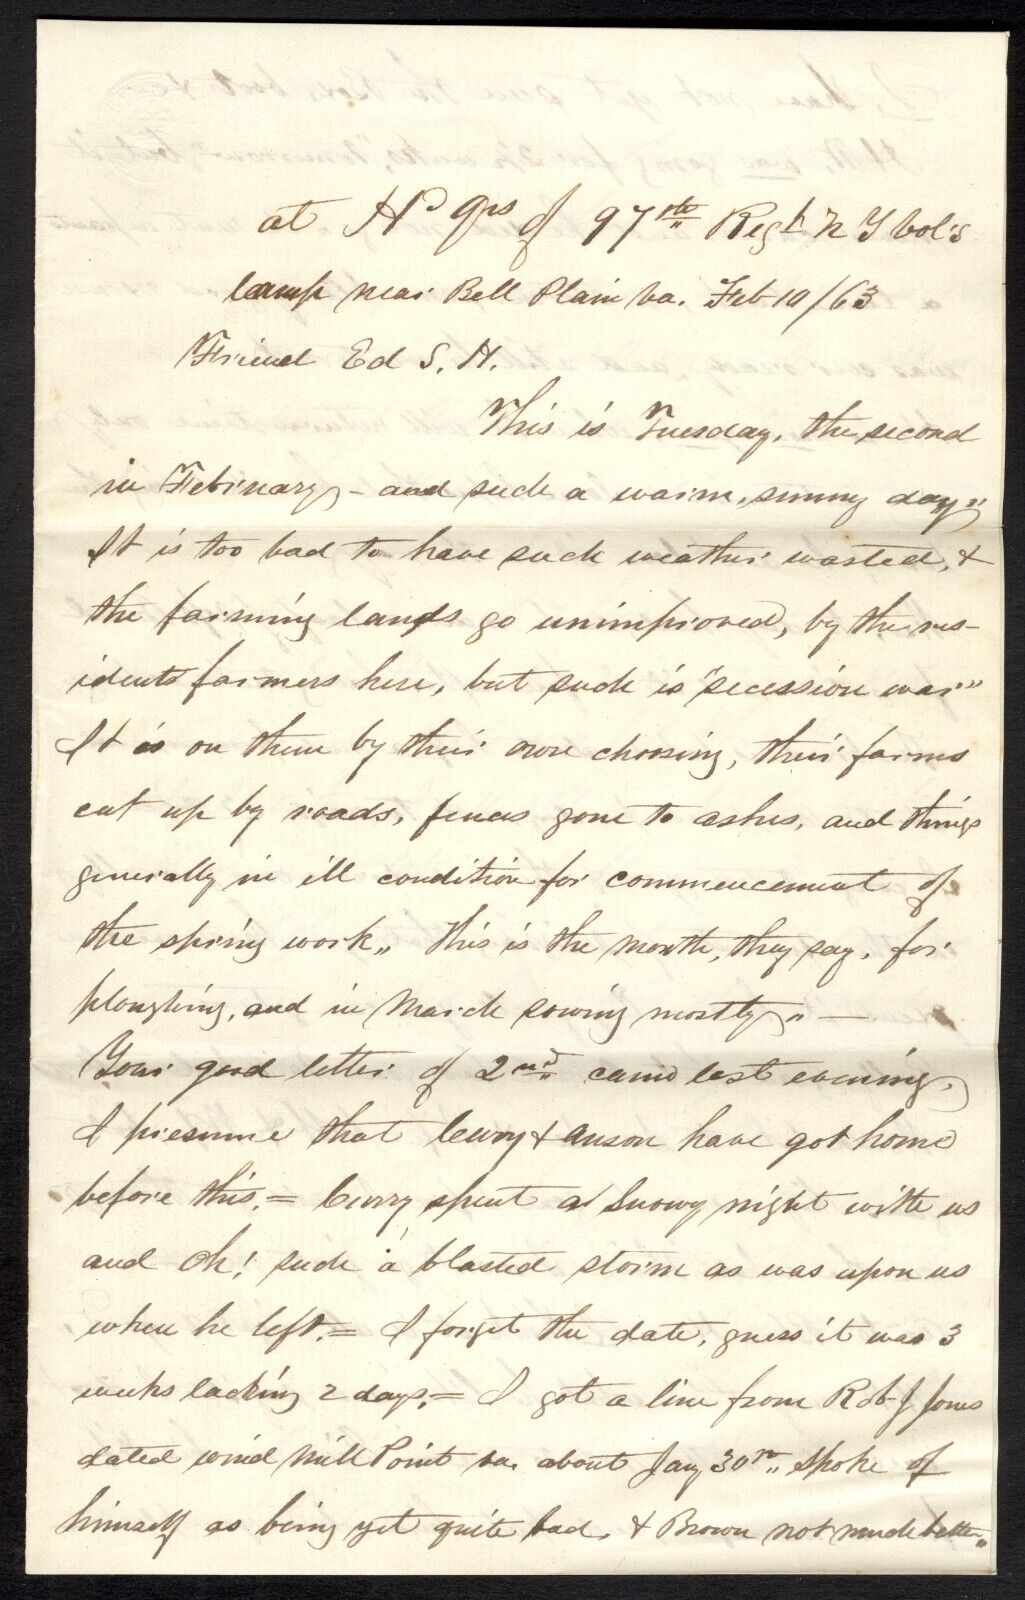 at Hd Qrs of 97th Regt N Y Vol's
Camp near Bell Plain Va. Feb 10/63
Friend Ed S. H.
This is Tuesday, the second
in February, - and such a warm, sunny day,,
It is too bad to have such weather wasted, &
the farming lands go unimproved, by the res-
idents farmers here, but such is "secession war"
It is on them by their own choosing, their farms
cut up by roads, fences gone to ashes, and things
generally in ill condition for commencement of
the spring work,, This is the month, they say, for
ploughing, and in March sowing mostly,, —
Your good letter of 2nd came last evening,
I presume that Curry & Anson have got home
before this. = Curry spent a snowy night with us
and Oh! such a blasted storm as was upon us
when he left. = I forget the date, guess it was 3
weeks lacking 2 days. = I got a line from Robt J Jones
dated Wind Mill Point Va. about Jany 30th,, spoke of
himself as being yet quite bad, & Brown not much better,,